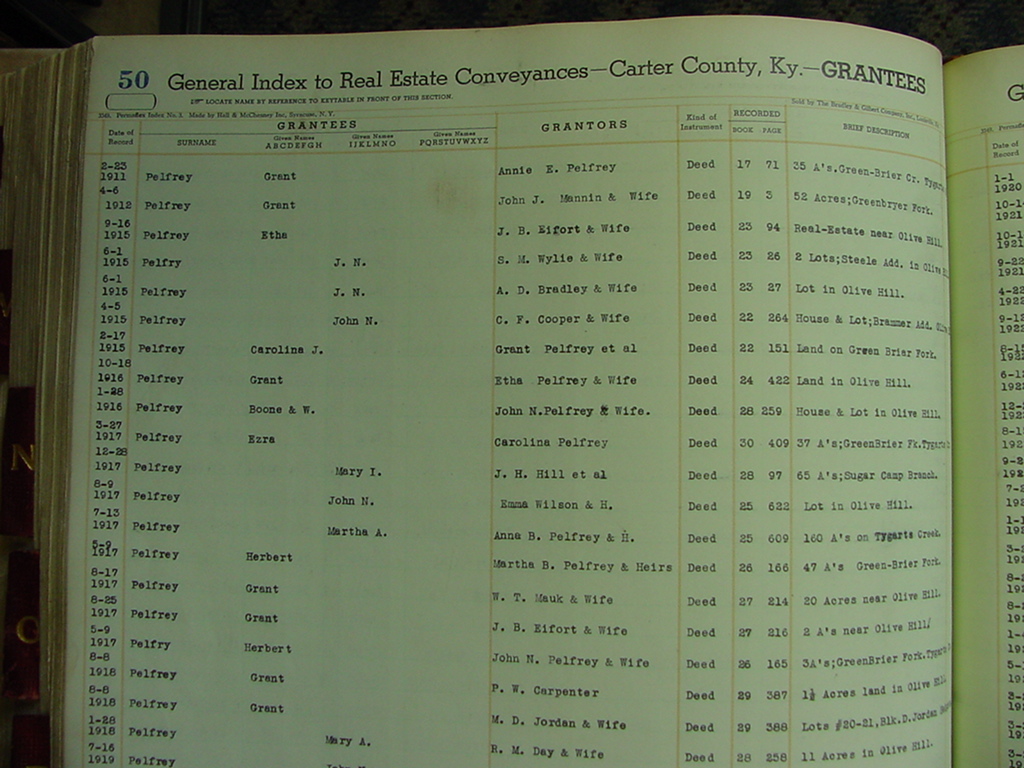 50 General Index to Real Estate Conveyances—Carter County, Ky.—GRANTEES
LOCATE NAME BY REFERENCE TO KEYTABLE IN FRONT OF THIS SECTION.
Index No. 3. Made by Hall & McChesney Inc, Syracuse, N. Y. Sold by The Bradley & Gilbert Company,
Date of Record GRANTEES GRANTORS Kind of Instrument RECORDED BRIEF DESCRIPTION
SURNAME Given Names ABCDEFGH Given Names IJKLMNO Given Names PQRSTUVWXYZ BOOK PAGE
2-23
1911 Pelfrey Grant Annie E. Pelfrey Deed 17 71 35 A's.Green-Brier Cr.
4-6
1912 Pelfrey Grant John J. Mannin & Wife Deed 19 3 52 Acres;Greenbryer Fork.
9-16
1915 Pelfrey Etha J. B. Eifort & Wife Deed 23 94 Real-Estate near Olive Hill.
6-1
1915 Pelfry J. N. S. M. Wylie & Wife Deed 23 26 2 Lots;Steele Add. in Olive
6-1
1915 Pelfrey J. N. A. D. Bradley & Wife Deed 23 27 Lot in Olive Hill.
4-5
1915 Pelfrey John N. C. F. Cooper & Wife Deed 22 264 House & Lot;Brammer Add.
2-17
1915 Pelfrey Carolina J. Grant Pelfrey et al Deed 22 151 Land on Green Briar Fork.
10-18
1916 Pelfrey Grant Etha Pelfrey & Wife Deed 24 422 Land in Olive Hill.
1-28
1916 Pelfrey Boone & W. John N.Pelfrey & Wife. Deed 28 259 House & Lot in Olive Hill.
3-27
1917 Pelfrey Ezra Carolina Pelfrey Deed 30 409 37 A's;GreenBrier Fk.Tygarts
12-28
1917 Pelfrey Mary I. J. H. Hill et al Deed 28 97 65 A's;Sugar Camp Branch.
8-9
1917 Pelfrey John N. Emma Wilson & H. Deed 25 622 Lot in Olive Hill.
7-13
1917 Pelfrey Martha A. Anna B. Pelfrey & H. Deed 25 609 160 A's on Tygarts Creek.
5-9
1917 Pelfrey Herbert Martha B. Pelfrey & Heirs Deed 26 166 47 A's Green-Brier Fork.
8-17
1917 Pelfrey Grant W. T. Mauk & Wife Deed 27 214 20 Acres near Olive Hill.
8-25
1917 Pelfrey Grant J. B. Eifort & Wife Deed 27 216 2 A's near Olive Hill/
5-9
1917 Pelfry Herbert John N. Pelfrey & Wife Deed 26 165 3A's;GreenBrier Fork.
8-8
1918 Pelfrey Grant P. W. Carpenter Deed 29 387 1½ Acres land in Olive
8-8
1918 Pelfrey Grant M. D. Jordan & Wife Deed 29 388 Lots #20-21,Blk.D.Jordan
1-28
1918 Pelfrey Mary A. R. M. Day & Wife Deed 28 258 11 Acres in Olive Hill.
7-16
1919 Pelfrey
G
Date of Record
1-1
1920